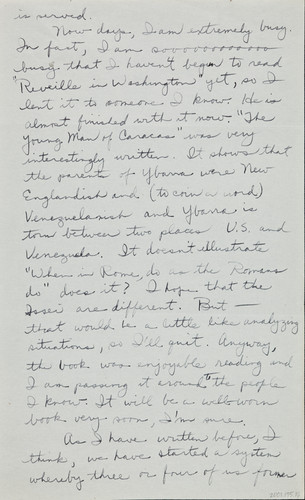 is served.
Now days, I am extremely busy.
In fact, I am sovooooooooo
busy that I haven't begun to read
"Reveille in Washington" yet, so I
lent it to someone I know. He is
almost finished with it now. "The
Young Man of Caracas" was very
interestingly written. It shows that
the parents of Ybarra were New
Englandish and (to coin a word)
Venezuelanish and Ybarra is
torn between two places U.S. and
Venezuela. It doesn't illustrate
"When in Rome, do as the Romans
do" does it? I hope that the
Issei are different. But —
that would be a little like analyzing
situations, so I'll quit. Anyway,
the book was enjoyable reading and
I am passing it around to the people
I know. It will be a well-worn
book very soon, I'm sure.
As I have written before, I
think, we have started a system
whereby three or four of us former